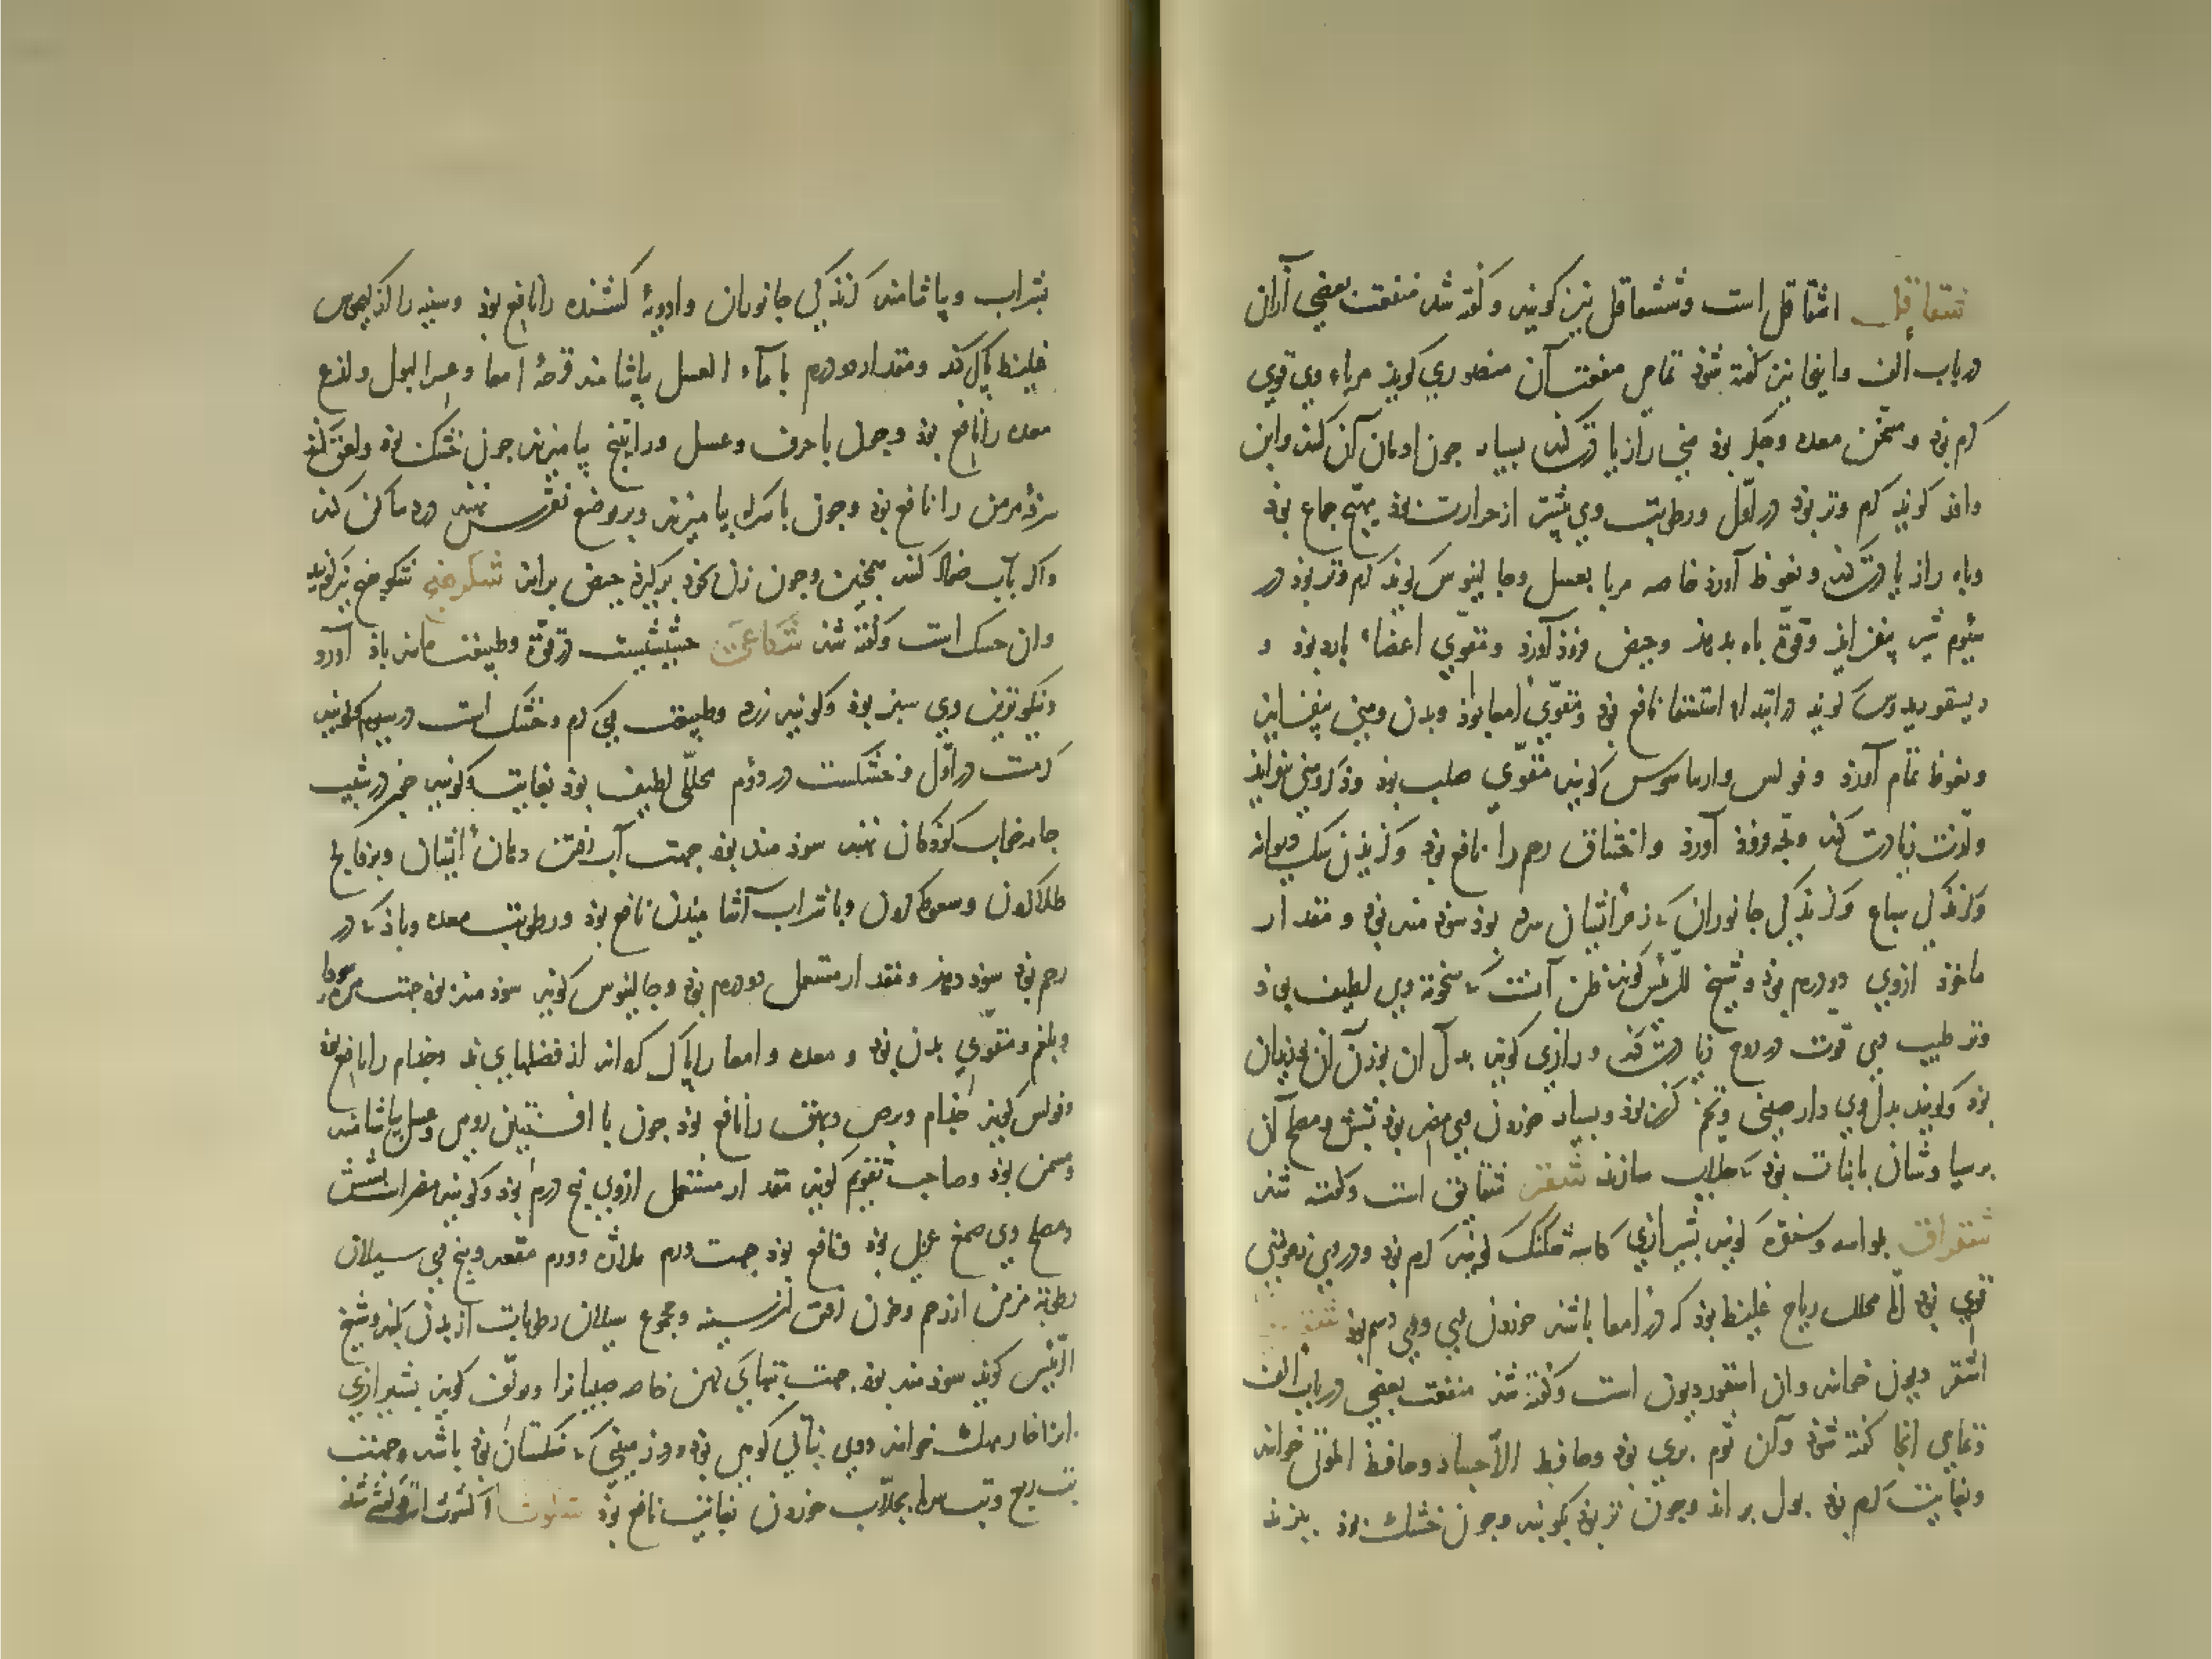 شقاقل اشقاقل است وششقاقل نیز کویند وکفته شد منفعت بعضی از آن
در باب الف واینجا نیز کفته شوذ تمامی منفعت آن منصوری کوید مرباء وی قوی
کرم بوذ ومسخن معده وجکر بوذ منی را زیادت کند بسیار جون ادمان آن کنند واین
وافد کوید کرم وتر بوذ در اول ورطوبت وی بیشتر از حرارت بوذ مهیج جماع بوذ
وباه را زیادت کند ونعوظ آورد خاصه مربا بعسل وجالینوس کوید کرم وتر بوذ در
سیوم شیر بیفزاید وقوة باه بدهد وحیض فروذ آورد ومقوی اعضاء بارد بوذ و
دیسقوریدوس کوید در ابتداء استسقا نافع بوذ ومقوی امعا بوذ وبدن ومنی بیفزاید
ونعوظ تمام آورد وفولس کویند مقوی صلب بوذ
ولذت زیادت کند وبجه فروذ آورد واختناق رحم را نافع بوذ وکزیدن سک دیوانه
وکزندکی سباع وکزندکی جانوران که زهر ایشان سرد بوذ سوذ مند بوذ ومقدار
ماخوذ ازوی دو درم بوذ وشیخ الرئیس کوید ظن آنست که سخونة وی لطیف بوذ
وترطیب وی قوت در روح زیادت کند ورازی کوید بدل آن بوزن آن بوزیدان
بوذ وکویند بدل وی دارصینی وتخم کزر بوذ وبسیار خوردن وی مضر بوذ بشش ومصلح آن
برسیاوشان با نبات بوذ که جلاب سازند شقر شقایق است وکفته شد
شقراق کویند بشیرازی کاسه شکنک کویند کرم بوذ ودر وی زهومتی
قوی بوذ اما محلل ریاح غلیظ بوذ که در امعا باشد خوردن وی
اشقردیون خوانند وآن اسقوردیون است وکفته شد منفعت بعضی در باب الف
وتمامی اینجا کفته شوذ وآن ثوم بری بوذ وحافظ الاجساد وحافظ الموتی خوانند
وبغایت کرم بوذ بول براند وجون تر بوذ بکوبند وجون خشک بوذ بپزند
بشراب وبیاشامند کزندکی جانوران وادویهٔ کشنده را نافع بوذ وسینه را از کیموس
غلیظ پاک کند ومقدار دو درم با ماء العسل بیاشامند قرحهٔ امعا وعسر البول ولذع
معده را نافع بوذ وجون با حرف وعسل وراتینج بیامیزند جون خشک بوذ ولعق کنند
سرفهٔ مزمن را نافع بوذ وجون با سرکه بیامیزند وبر موضع نقرس نهند درد ساکن کند
واکر بآب ضماد کنند همجنین وجون زن بخوذ برکیرد حیض براند شکوهج شکوهنج نیز کویند
وآن حسک است وکفته شد شکاعی حشیشیست در قوة وطبیعت مانند باذ آورد
ونیکوترین وی سبز بوذ وکویند زرد وطبیعت وی کرم وخشک است در سیوم کویند
کرمست در اول وخشکست در دوم محللی لطیف بوذ بغایت وکویند جون در شیب
جامه خواب کوذکان نهند سوذ مند بوذ جهت آب رفتن دهان ایشان وبر فالج
طلا کردن وسعوط کردن وبا شراب آشامیدن نافع بوذ ورطوبت معده وباذ که در
رحم بوذ سوذ دهد ومقدار مستعمل دو درم بوذ وجالینوس کوید سوذ مند بوذ جهت مره سودا
وبلغم ومقوی بدن بوذ ومعده وامعا را پاک کرداند از فضلهای بد وجذام را نافع بوذ
وفولس کوید جذام وبرص وبهق را نافع بوذ جون با افسنتین رومی وعسل بیاشامند
ومسمن بوذ وصاحب تقویم کوید مقدار مستعمل ازوی پنج درم بوذ وکویند مضر است بشش
ومصلح وی صمغ عربی بوذ ونافع بوذ جهت ورم ملازه وورم مقعد وبیخ وی سیلان
رطوبة مزمن از رحم وخون رفتن از سینه ومجموع سیلان رطوبات از بدن بکند وشیخ
الرئیس کوید سوذ مند بوذ جهت تبهای کهن خاصه صبیانرا ومؤلف کوید بشیرازی
خوانند ووی نباتی کوهی بوذ ودر زمینی که سنکستان بوذ باشد وجهت
تب ربع وتب بجلاب خوردن بغایت نافع بوذ کفته شد